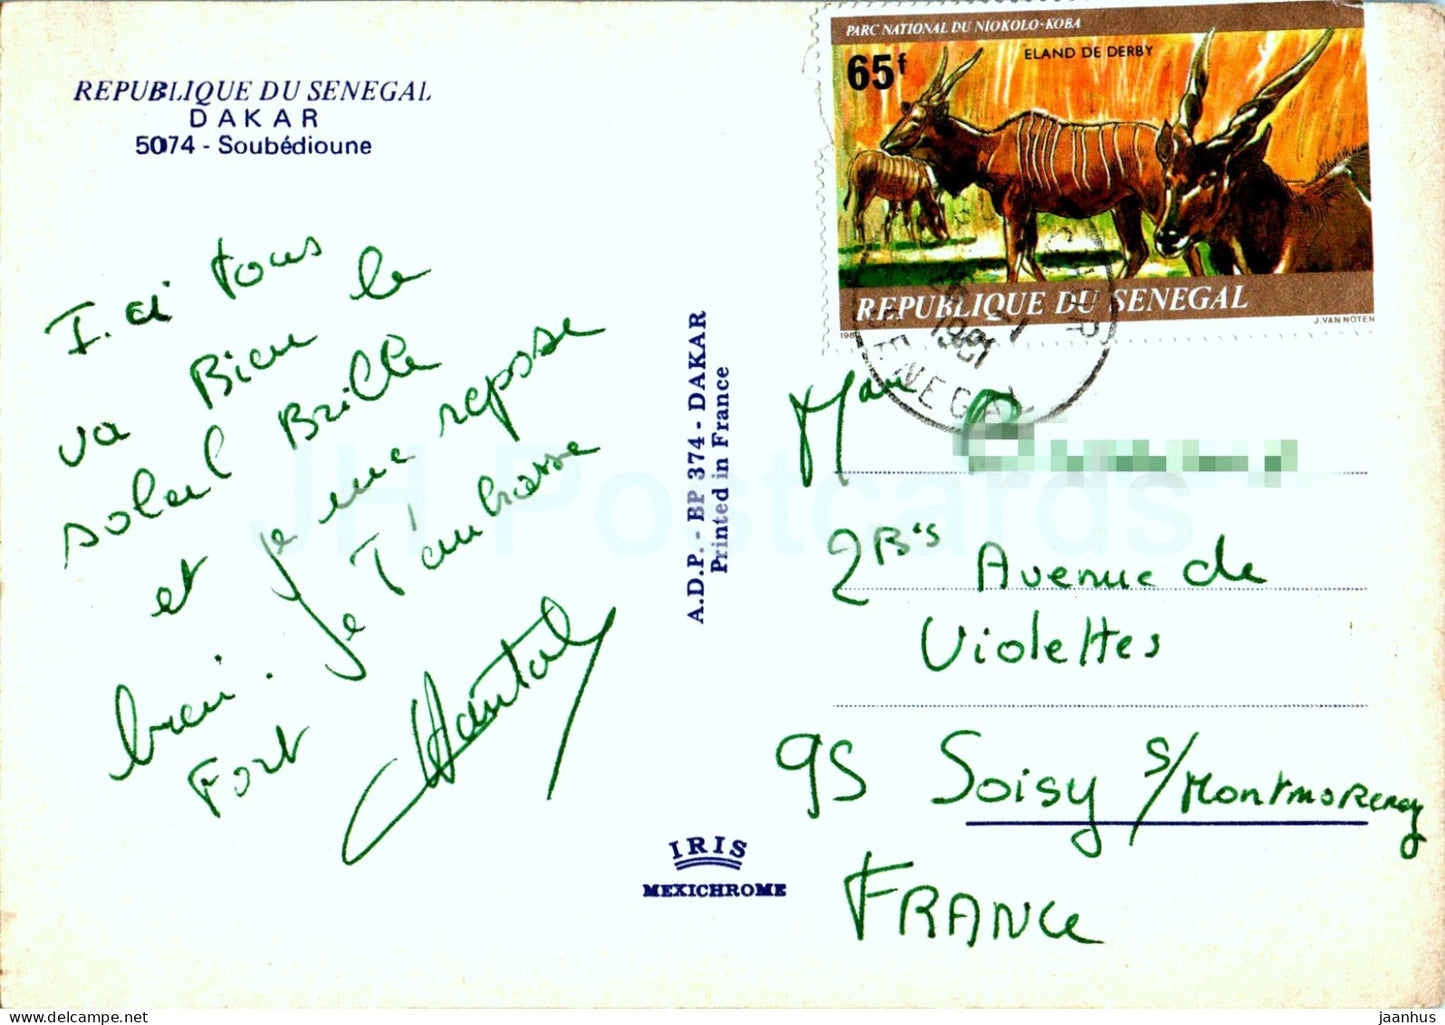 REPUBLIQUE DU SENEGAL
DAKAR
5074 - Soubédioune
I.ci tous
va Bien le
soleil Brille
et je me repose
bien. Je T'embrasse
Fort
Chantal
A.D.P. - BP 374 - DAKAR
Printed in France
IRIS
MEXICHROME
PARC NATIONAL DU NIOKOLO-KOBA
ELAND DE DERBY
65f
REPUBLIQUE DU SENEGAL
J. VAN NOTEN
1981
SENEGAL
2Bis Avenue de
Violettes
95 Soisy s/Montmorency
FRANCE
JH Postcards
jaanhus